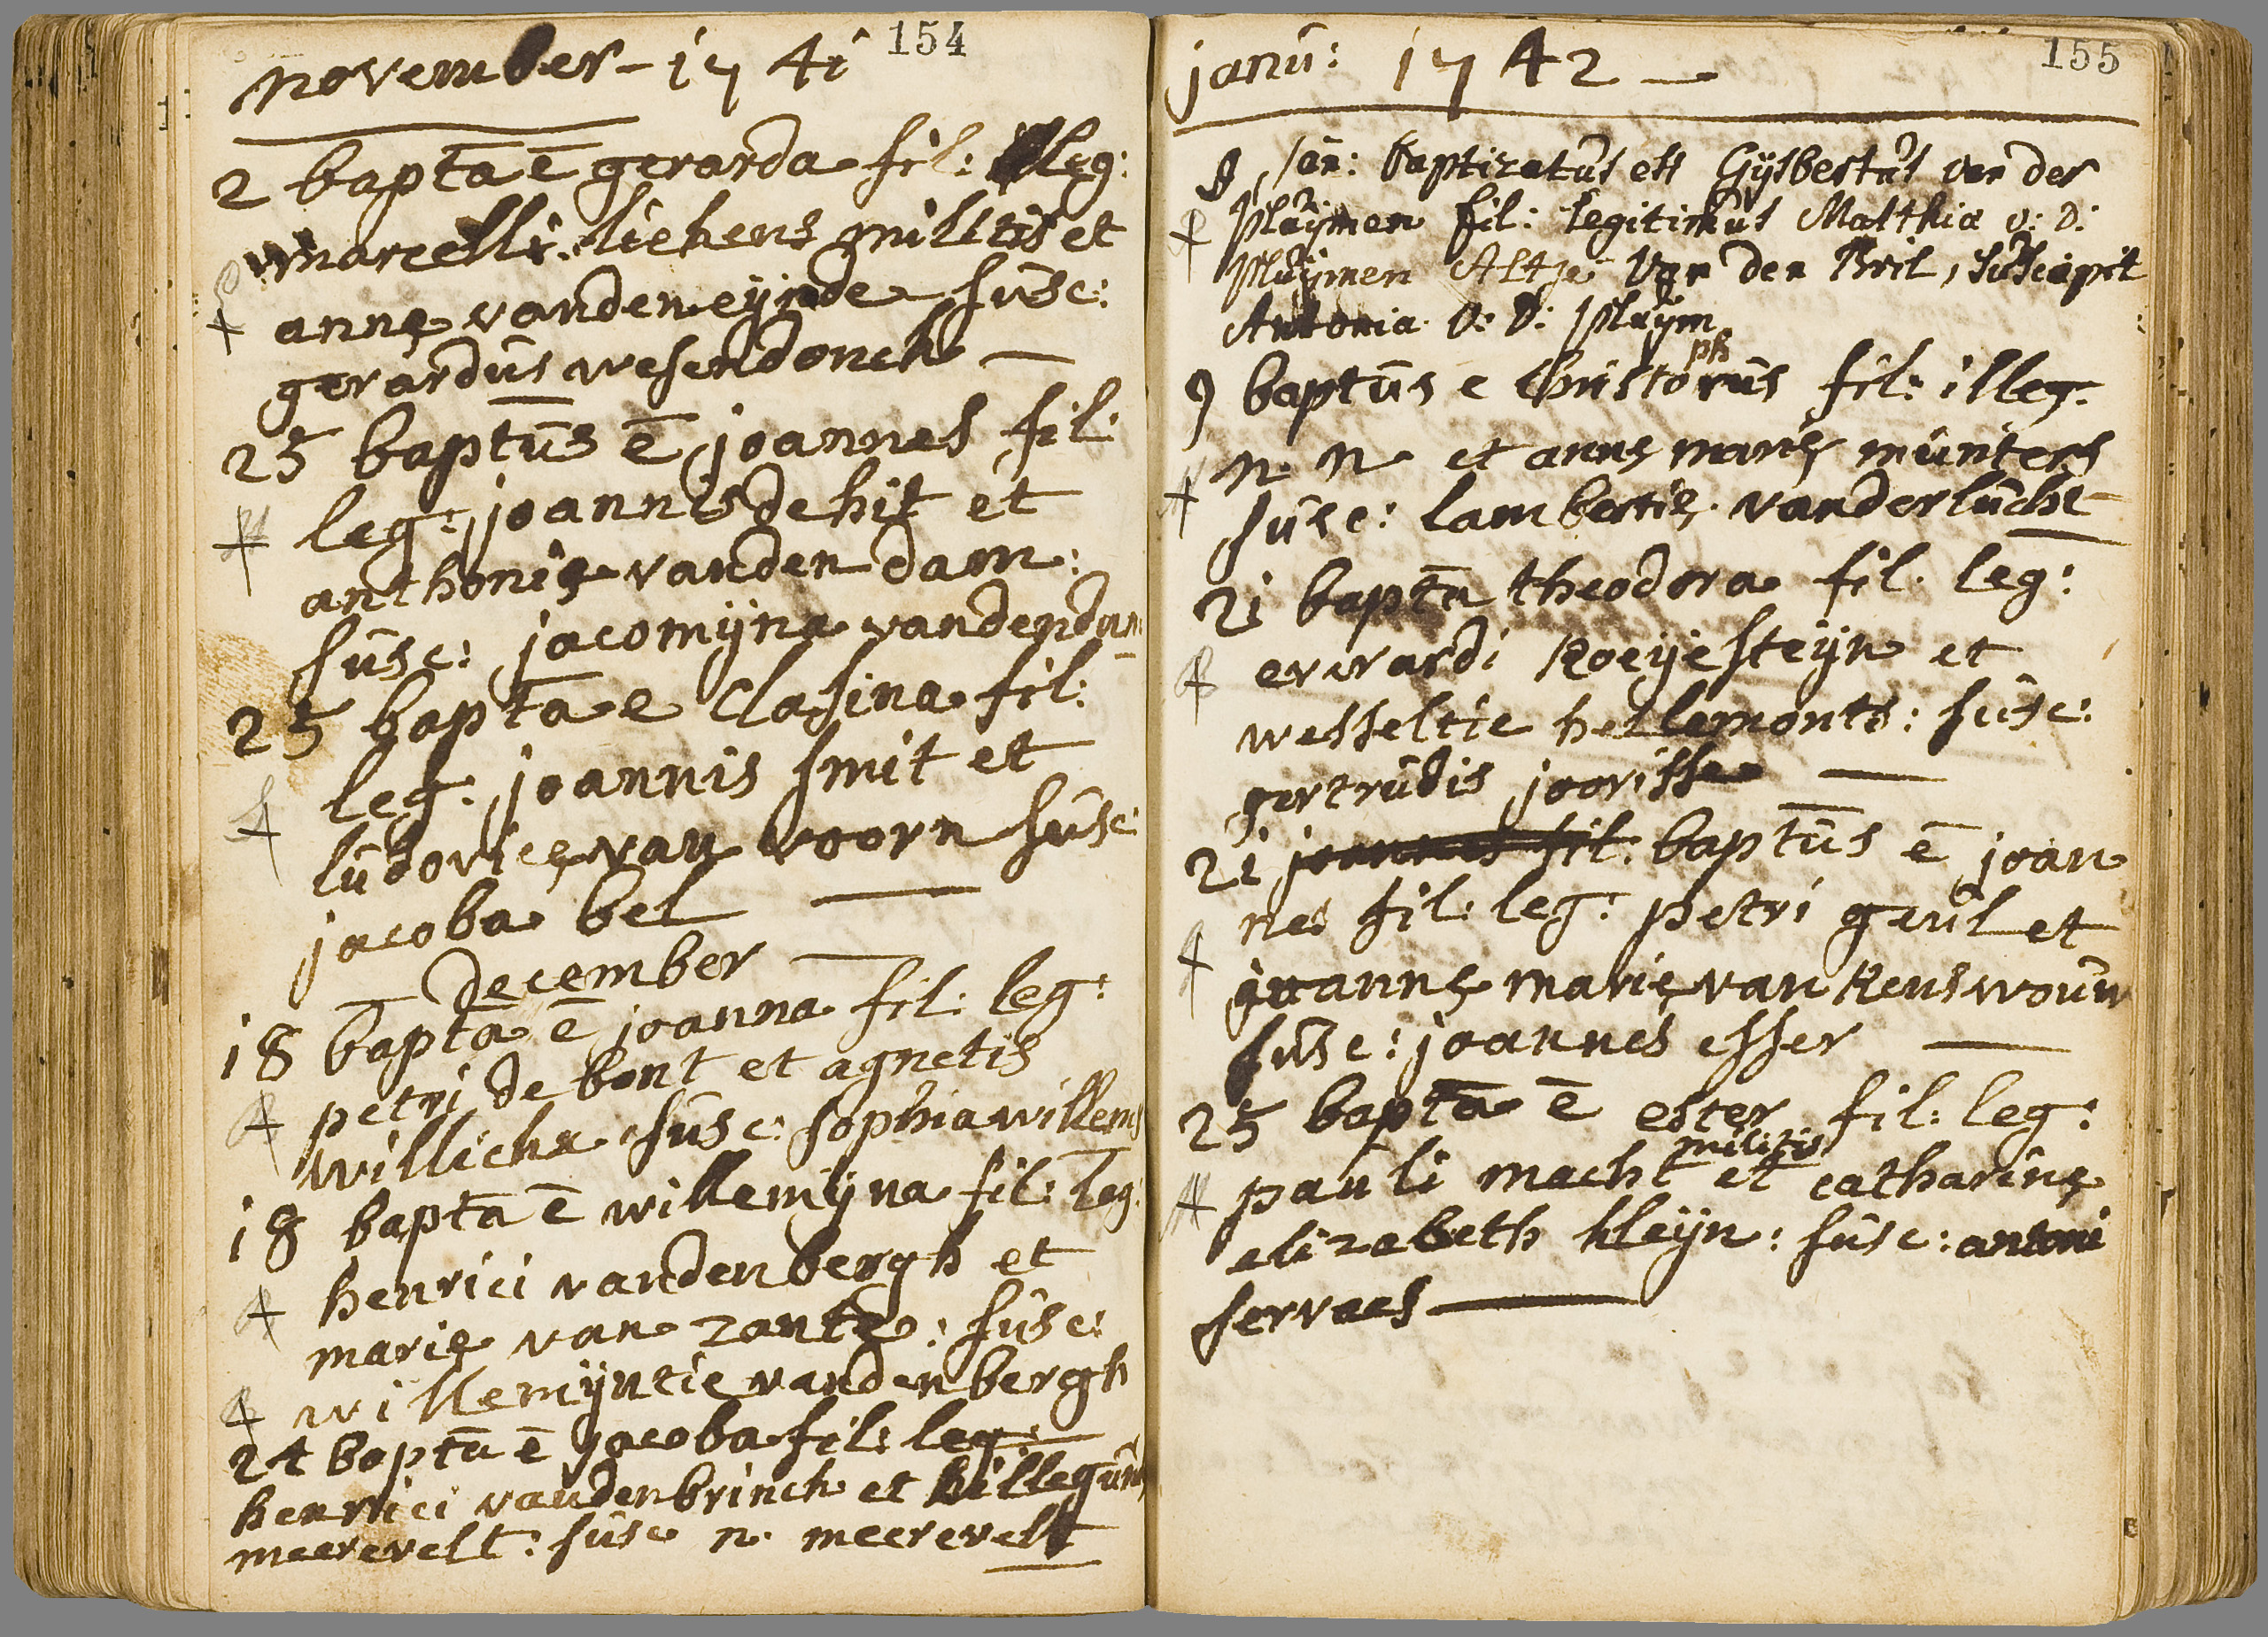 154
november - 1741
2 bapta ē gerarda fil: leg:
marcelli liekens militis et
annę vanden eijnde susc:
gerardus wesendonck —
25 baptūs ē joannes fil:
leg: joannis de hit et
anthonię vanden dam:
sūsc: jacomijna vandendam
25 bapta e Clasina fil:
leg: joannis smit et
lūdovicę van voorn sūsc:
jacoba bel —
december —
18 bapta ē joanna fil: leg:
petri de bont et agnetis
willickx sūsc: sophia willems
18 bapta ē willemijna fil: leg:
henrici vandenbergh et
marię van zante: sūsc:
willemijntie vandenbergh
24 bapta ē jacoba fil: leg:
henrici vandenbrinck et hillegūn
meerevelt: sūsc n. meerevelt
155
janū: 1742 —
8 Jan: baptizatūs est Gijsbertūs van der
Plūijmen fil: legitimūs Matthia v: D:
Plūijmen Altje van den Bril, sūscepit
Antonia v: D: Plūijm
ph
9 baptūs e Christorūs fil: illeg.
n. n. et annę marię mūnters
sūsc: lambertię vanderlūcht
21 bapta theodora fil. leg:
everardi Roeijesteijn et
wesseltie hellemonts: sūsc:
gertrūdis joorisse —
21 joannes fil: baptūs ē joan
nes fil: leg: petri geūl et
annę marię van Renswoūw
sūsc: joannes esser —
25 bapta ē ester fil: leg:
militis
pauli macht et catharinę
elizabeth kleijn: sūsc: antoni
servaes —